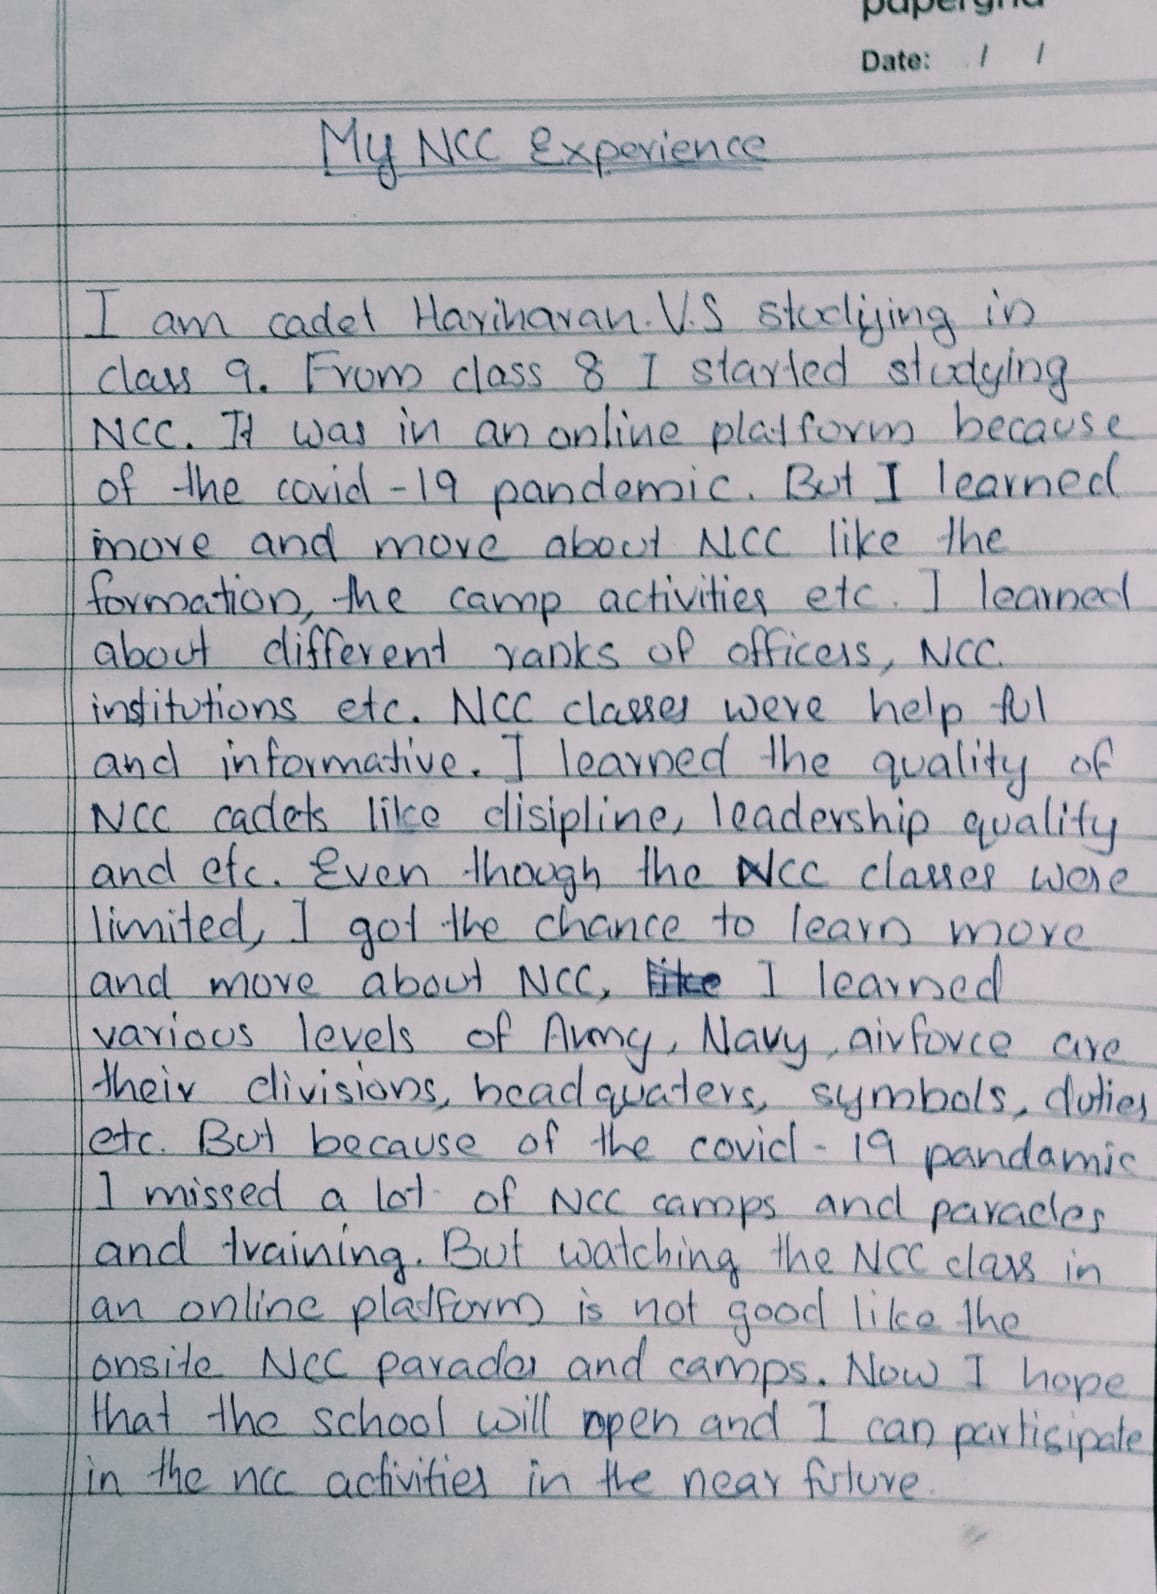 papergrid
Date: / /
My NCC Experience
I am cadet Hariharan.V.S studying in
class 9. From class 8 I started studying
NCC. It was in an online platform because
of the covid-19 pandemic. But I learned
more and more about NCC like the
formation, the camp activities etc. I learned
about different ranks of officers, NCC
institutions etc. NCC classes were help ful
and informative. I learned the quality of
NCC cadets like disipline, leadership quality
and etc. Even though the NCC classes were
limited, I got the chance to learn more
and more about NCC, like I learned
various levels of Army, Navy, airforce are
their divisions, headquaters, symbols, duties
etc. But because of the covid-19 pandamic
I missed a lot of NCC camps and parades
and training. But watching the NCC class in
an online platform is not good like the
onsite NCC parades and camps. Now I hope
that the school will open and I can partisipate
in the ncc activities in the near future.